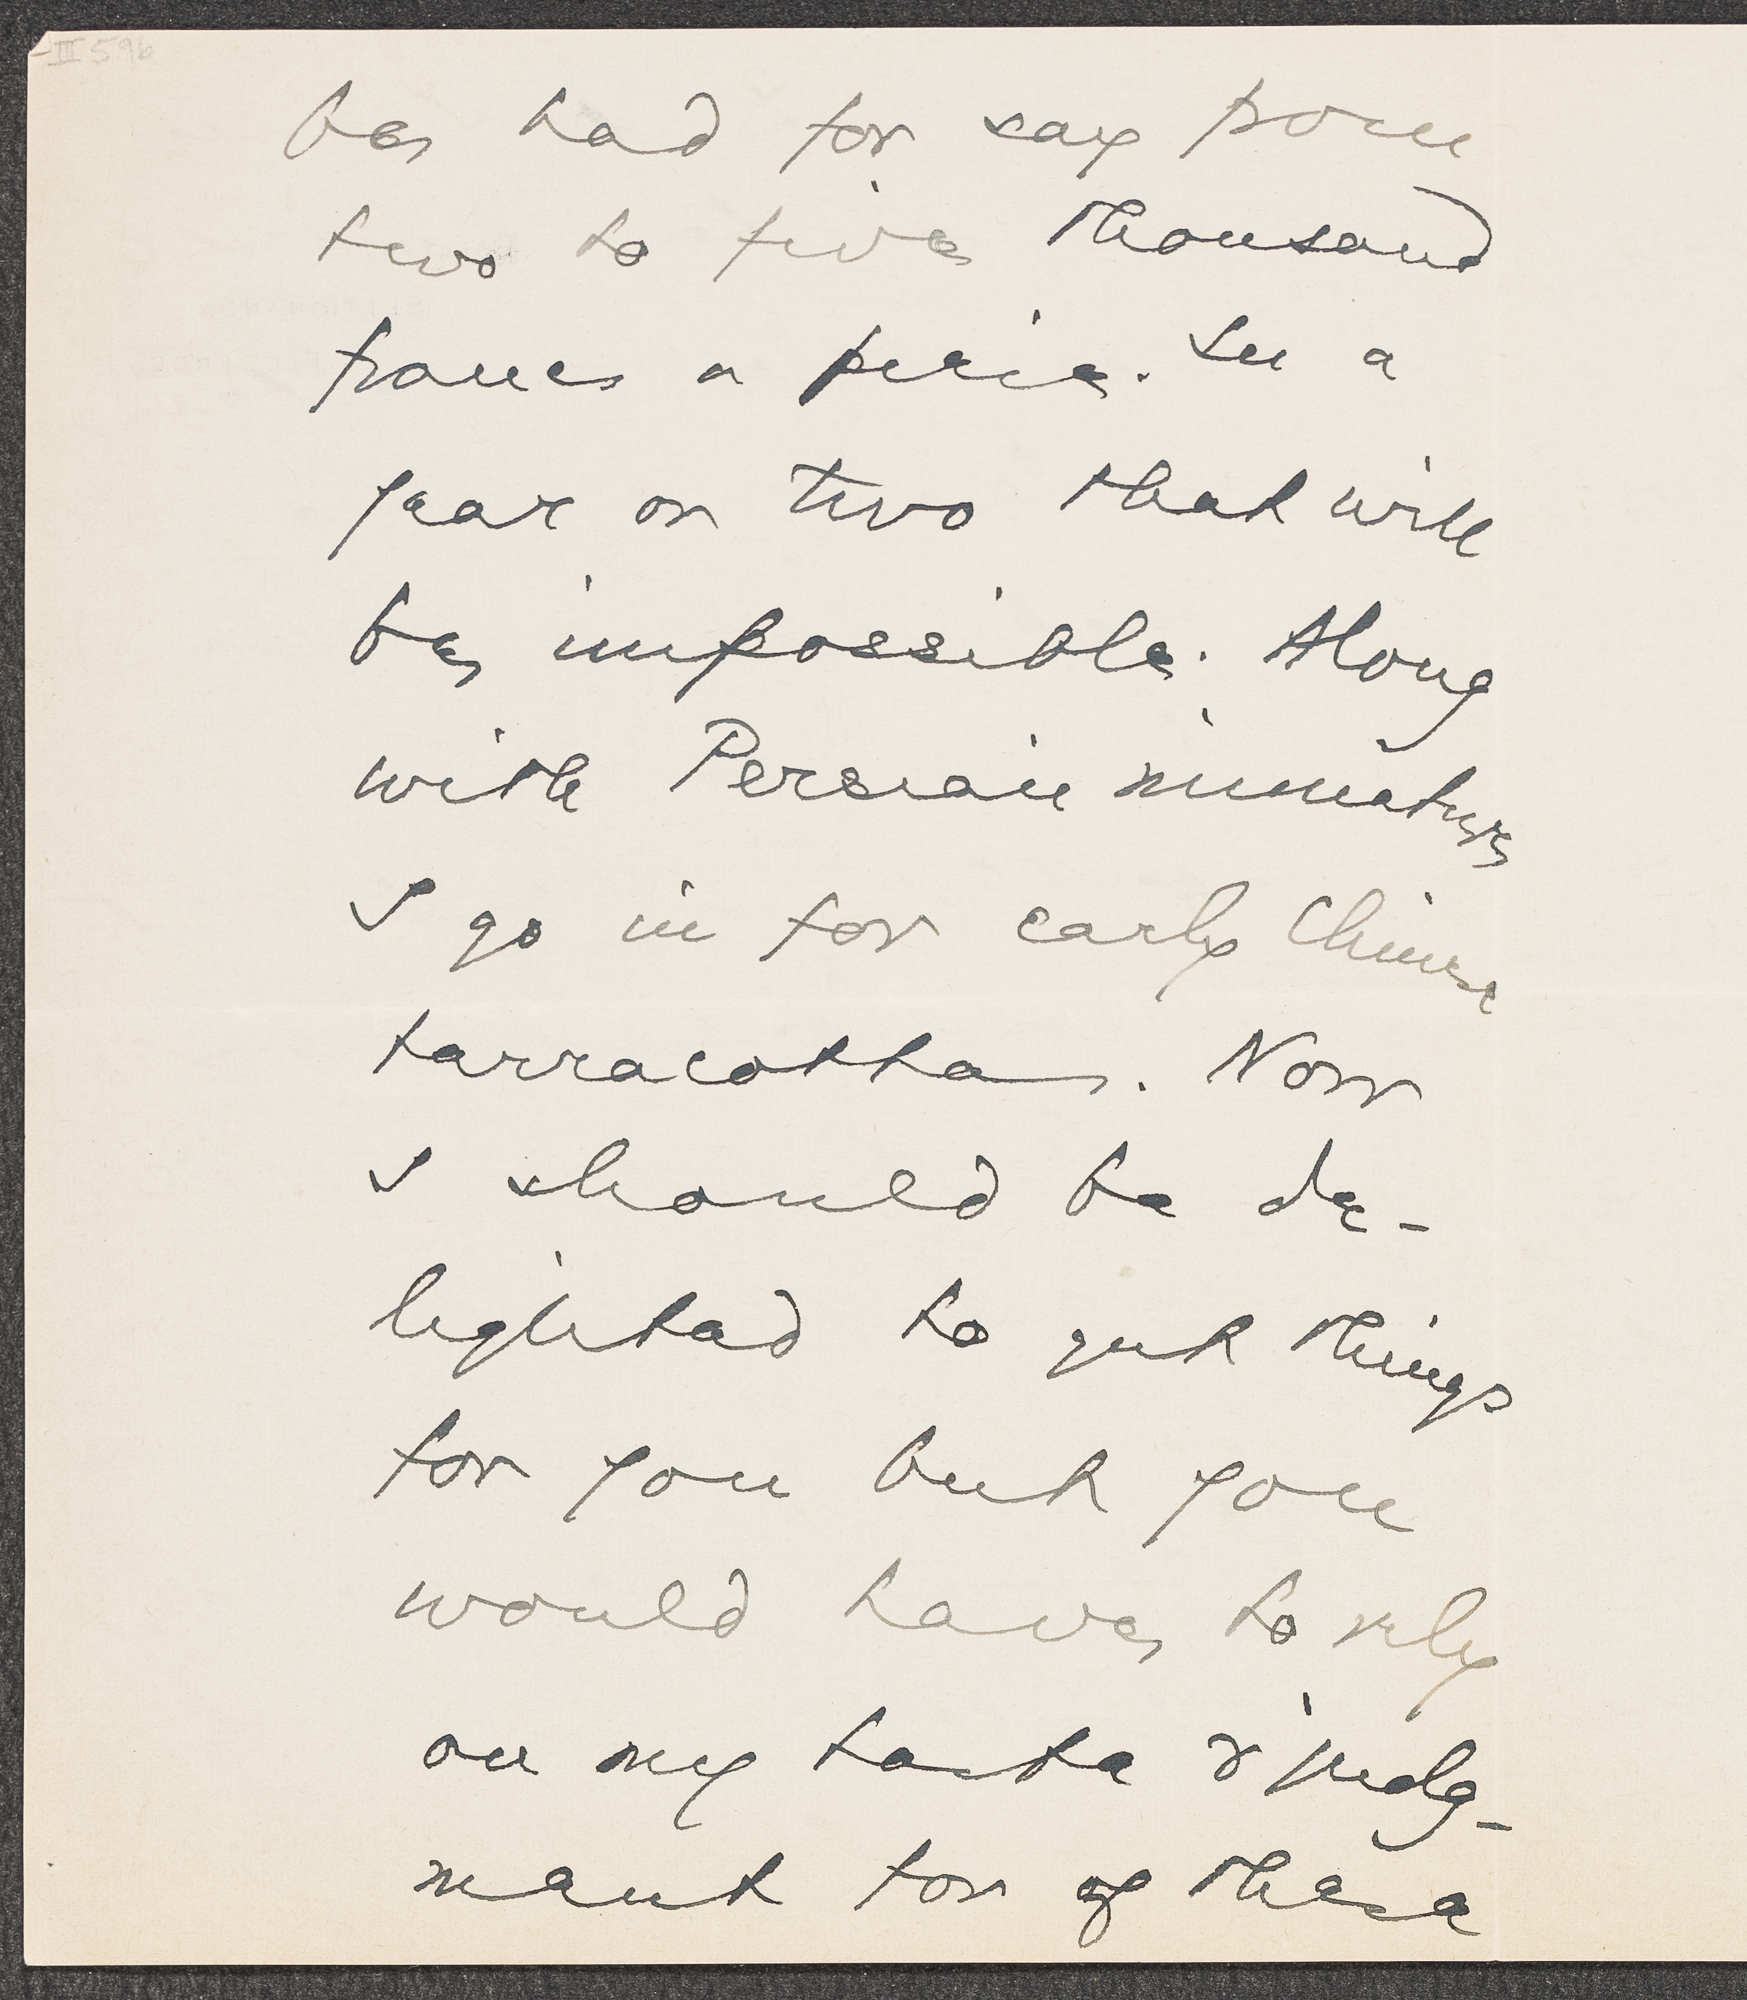 III 596
be had for say from
two to five thousand
francs a piece. In a
year or two that will
be impossible. Along
with Persian miniatures
I go in for early Chinese
tarracottas. Now
I should be de-
lighted to get things
for you but you
would have to rely
on my taste & judg-
ment for of these